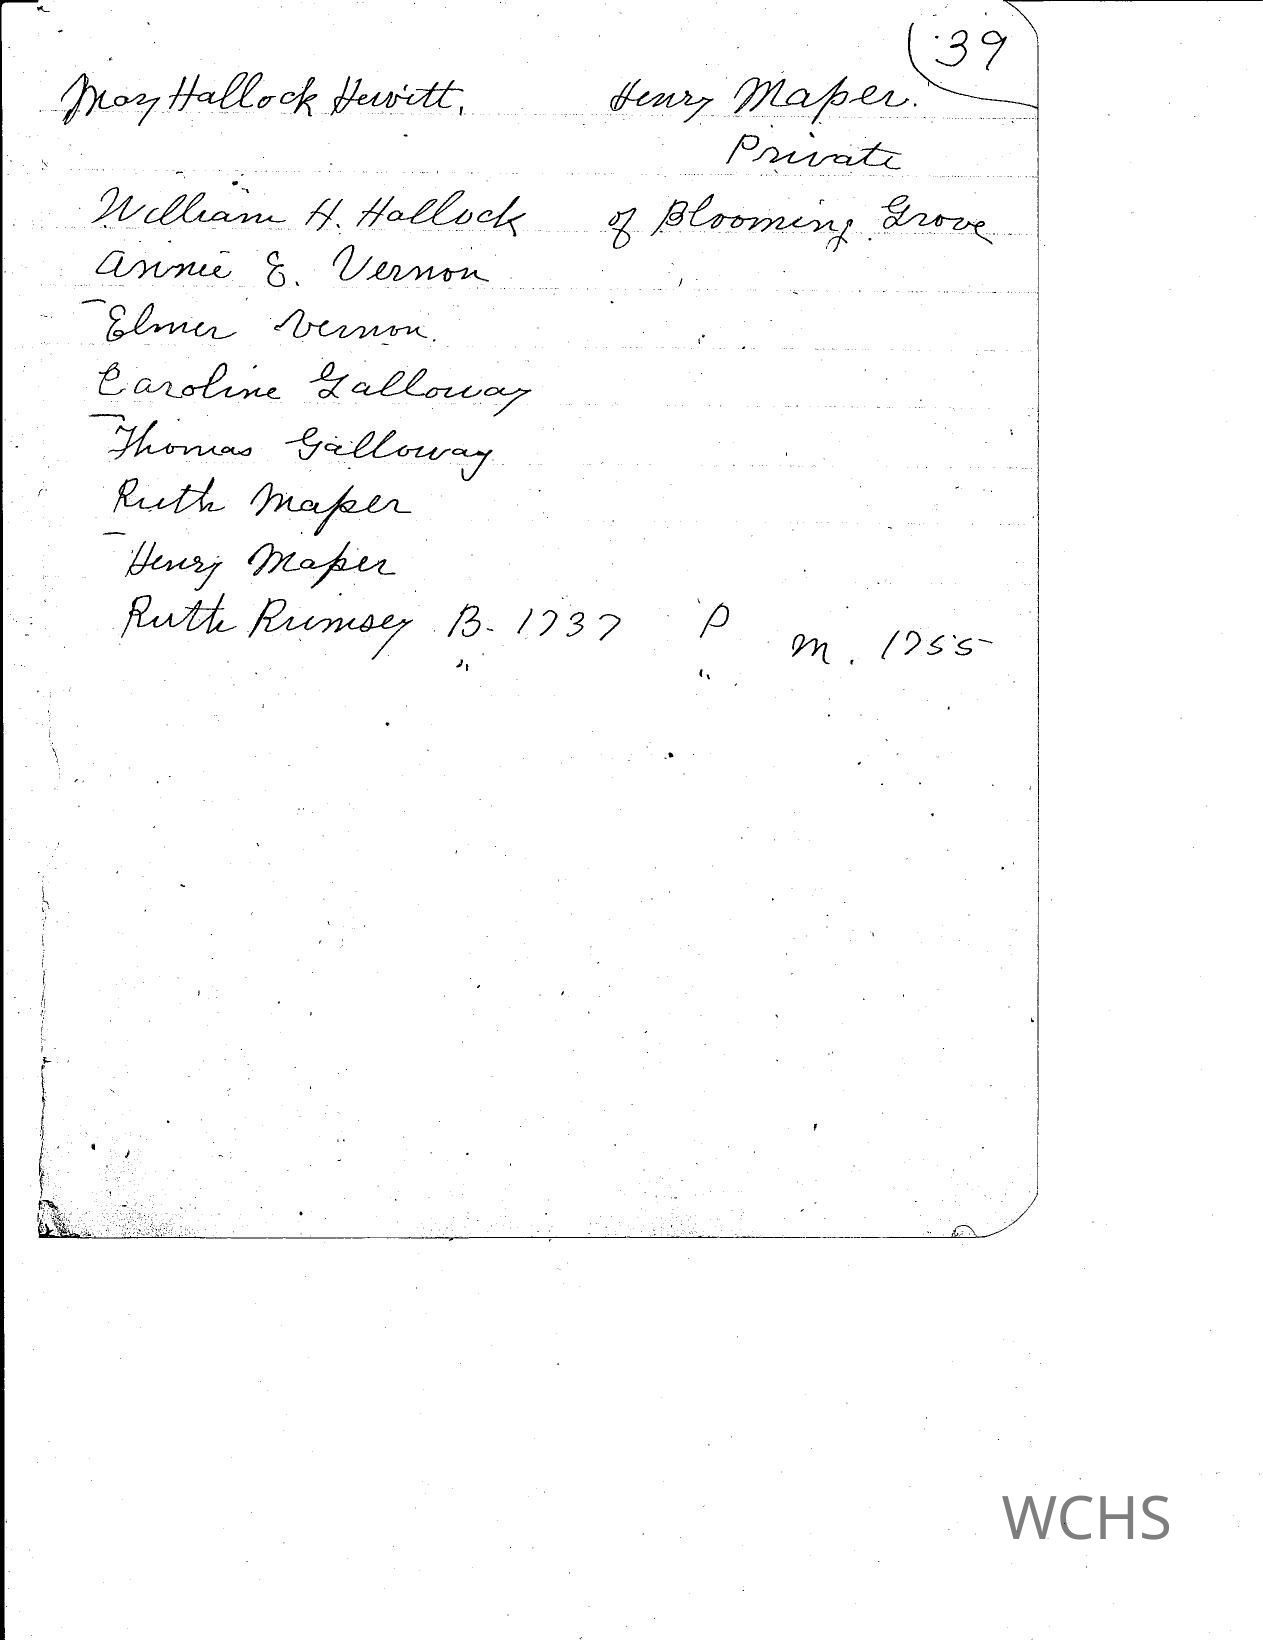 39
May Hallock Hewitt. Henry Maper.
Private
William H. Hallock of Blooming Grove
Annie E. Vernon
Elmer Vernon.
Caroline Galloway
Thomas Galloway
Ruth Maper
Henry Maper
Ruth Rumsey B. 1737 P
M. 1755
WCHS